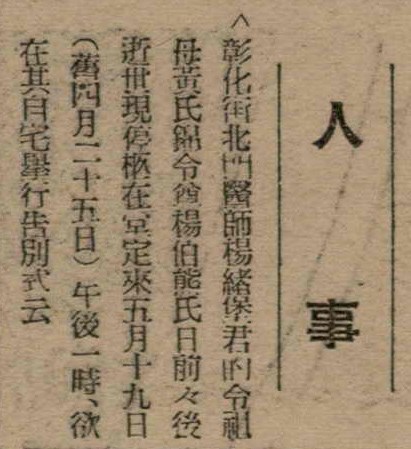 人事
^彰化街北門醫師楊緒堡君的令祖
母黃氏錦令尊楊伯能氏日前々後
逝世現停柩在堂定來五月十九日
(舊四月二十五日)午後一時、欲
在其自宅舉行告別式云